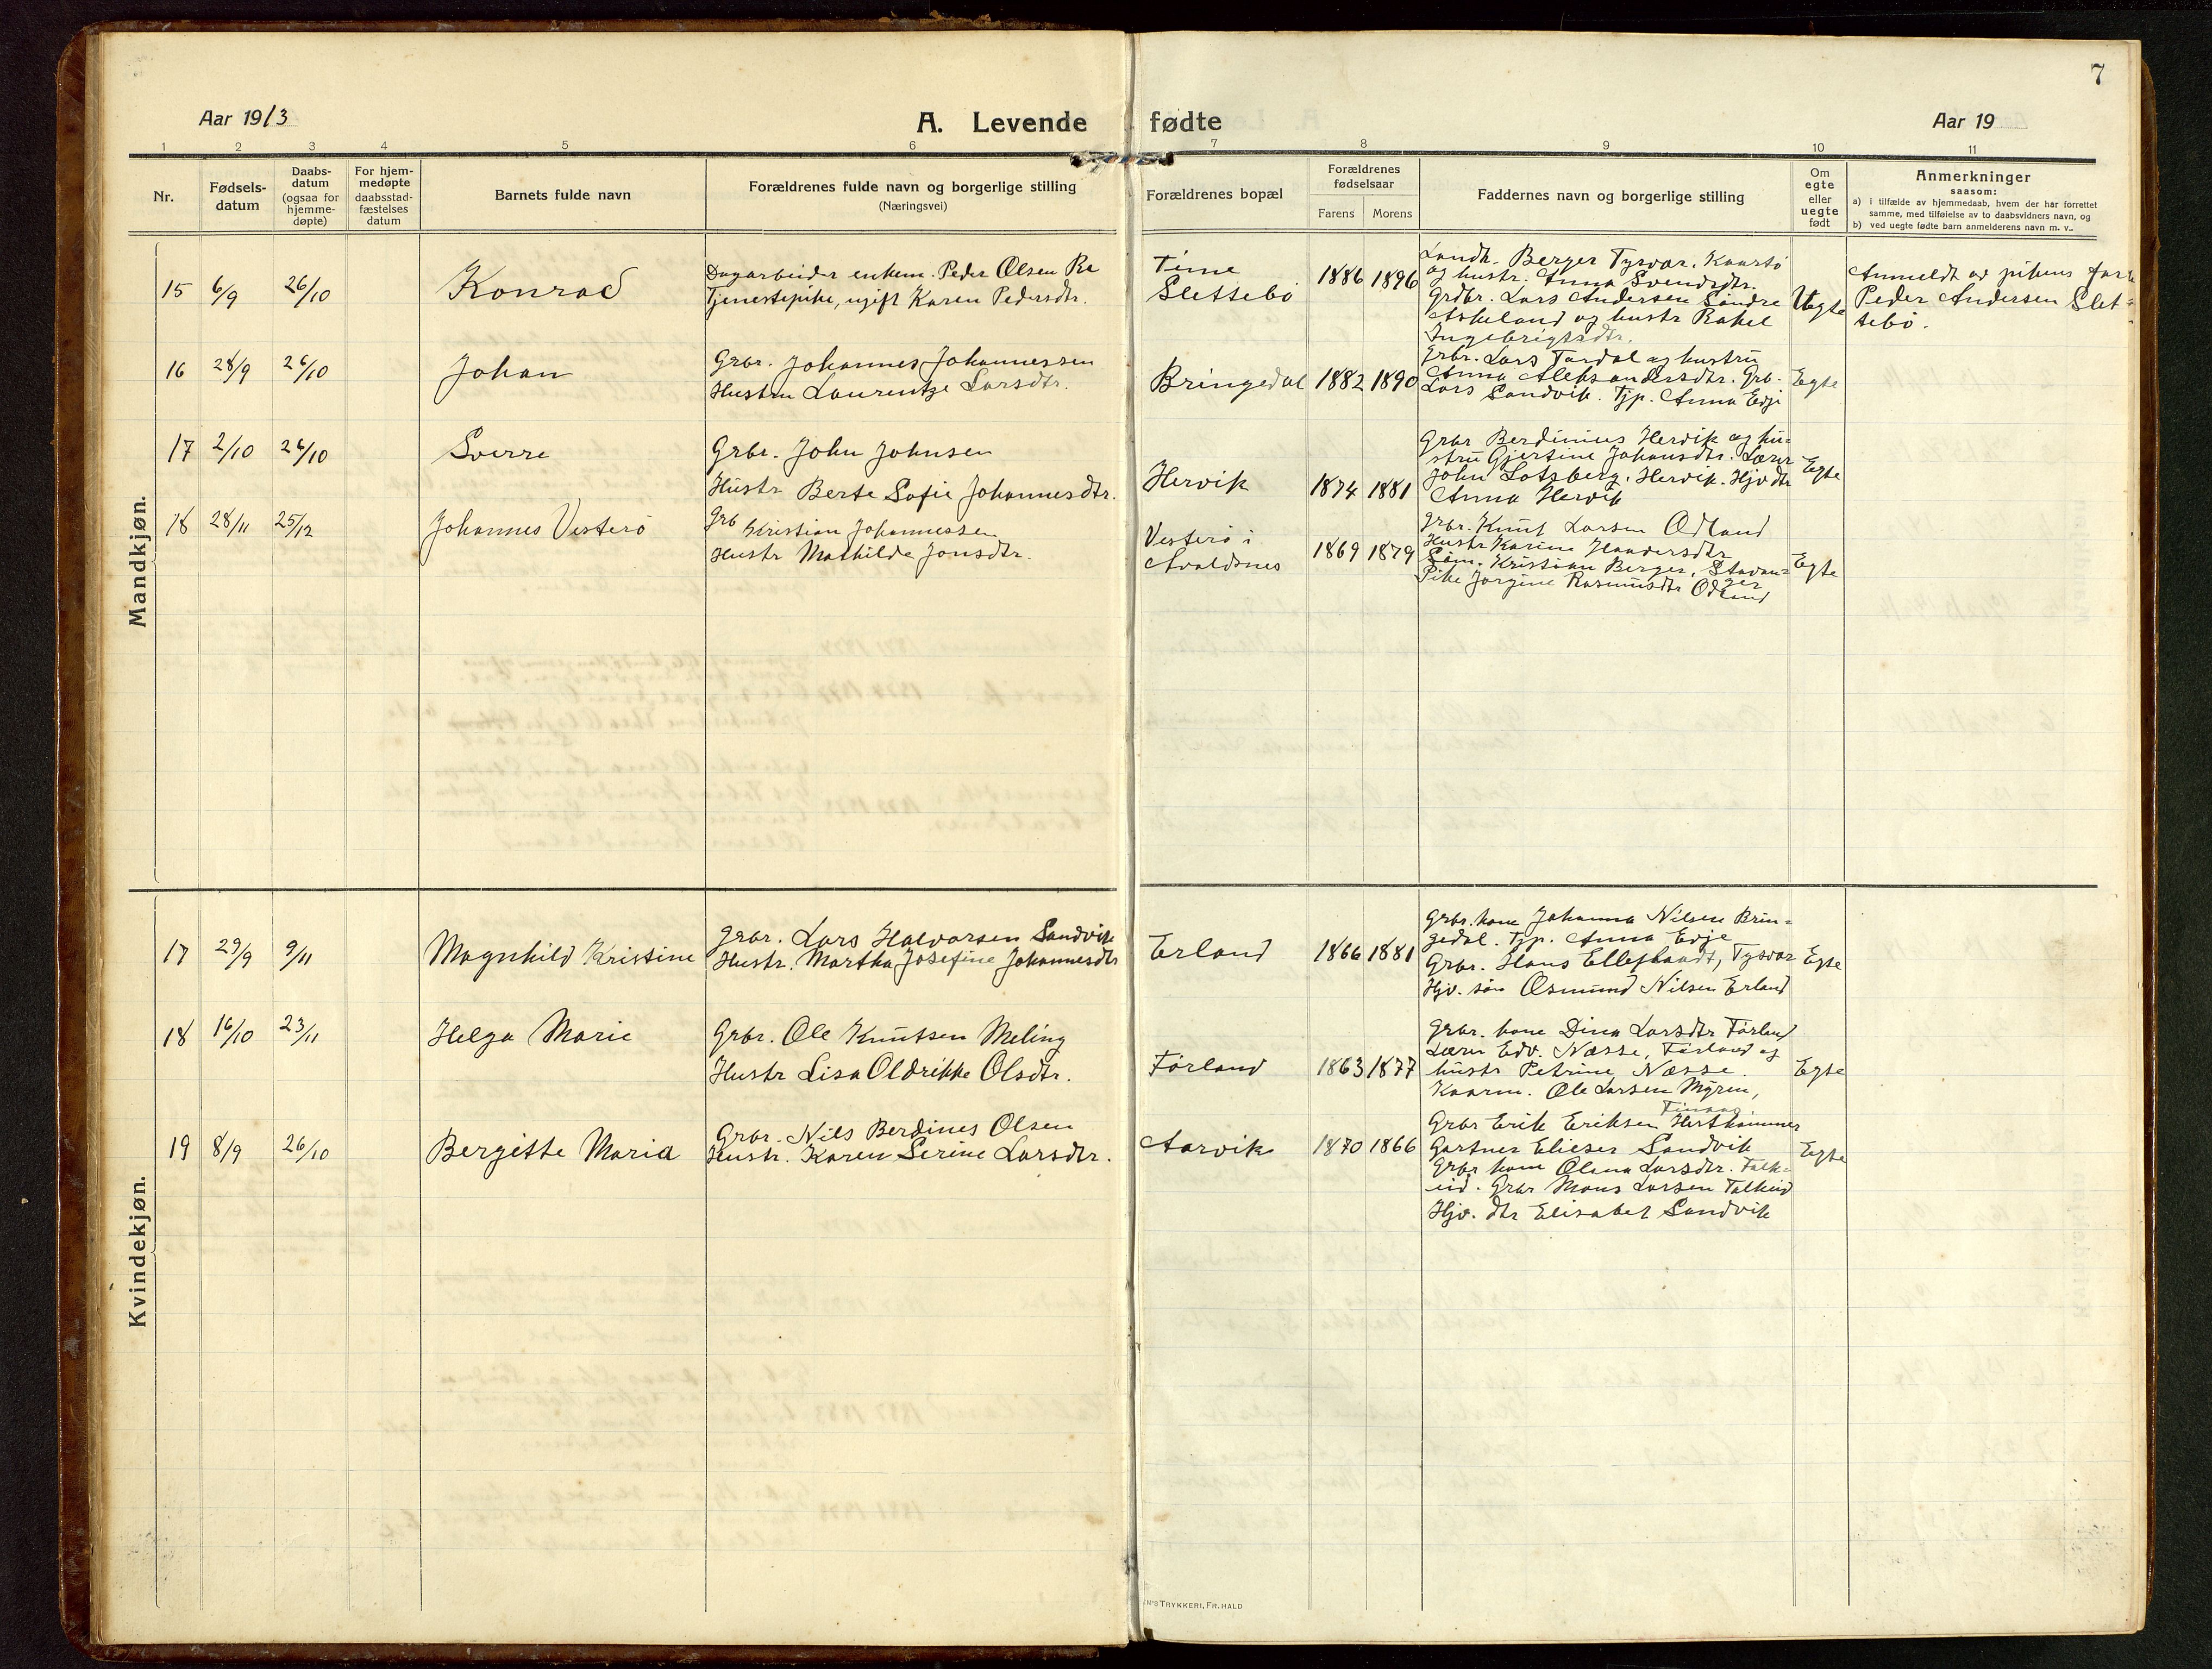 7
Aar 1913
A. Levende fødte
Aar 19
1 2 3 4 5 6 7 8 9 10 11
Nr.
Fødsels-
datum
Daabs-
datum
(ogsaa for
hjemme-
døpte)
For hjem-
medøpte
daabsstad-
fæstelses
datum
Barnets fulde navn
Forældrenes fulde navn og borgerlige stilling
(Næringsvei)
Forældrenes bopæl
Forældrenes
fødselsaar
Farens Morens
Faddernes navn og borgerlige stilling
Om
egte
eller
uegte
født
Anmerkninger
saasom:
a) i tilfælde av hjemmedaab, hvem der har forrettet
samme, med tilføielse av to daabsvidners navn, og
b) ved uegte fødte barn anmelderens navn m. v..
Mandkjøn.
15 6/9 26/10 Konrad
Dagarbeider enkem. Peder Olsen
Tjenestepike, ugift Karen Pedersdtr.
Slettebö
1886 1896
Landh. Berger Tysvær. Kaarstö
og hustr. Anna Svendsdtr.
Grdbr. Lars Andersen Söndre
Askeland og hustr Rakel
Ingebrigtsdtr.
Uegte
Anmeldt av pikens far
Peder Andersen Slet-
tebö.
16 28/9 26/10 Johan
Grbr. Johannes Johannessen
Hustru Laurentze Larsdtr.
Bringedal 1882 1890
Grbr. Lars Tardal og hustru
Anna Aleksandersdtr. Grb.
Lars Sandvik. Tjp. Anna Edje
Egte
17 2/10 26/10 Sverre
Grbr. John Johnsen
Hustr Berte Sofie Johannesdtr.
Hervik 1874 1881
Grbr Berdinius Hervik og hu=
stru Gjertine Johansdtr. Lærer
John Lotsberg, Hervik. Hjv dtr
Anna Hervik
Egte
18 28/11 25/12 Johannes Vesterö
Grb Kristian Johannessen
Hustr Mathilde Jonsdtr.
Vesterö i
Avaldsnes
1869 1879
Grbr. Knut Larsen Odland
Hustr Karine
Söm. Kristian Berger, Stavan=
ger
Pike Jorgine Rasmusdtr Odland
Egte
Kvindekjøn.
17 29/9 9/11 Magnhild Kristine
Grbr. Lars Halvorsen Sandvik
Hustr. Martha Josefine Johannesdtr
Erland 1866 1881
Grbr. kone Johanna Nilsen Brin=
gedal. Tjp. Anna Edje
Grbr. Hans Ellefslandt, Tysvær
Hjv. sön Osmund Nilsen Erland
Egte
18 16/10 23/11 Helga Marie
Grbr. Ole Knutsen Meling
Hustr Lisa Oldrikke Olsdtr.
Førland 1863 1877
Grbr. kone Dina Larsdtr Førland
Lærer Edv. Næsse, Førland og
hustr Petrine Næsse.
Kaarm. Ole Larsen Myren,
Egte
19 8/9 26/10 Bergitte Maria
Grbr. Nils Berdines Olsen
Hustr. Karen Serine Larsdtr.
Aarvik 1870 1866
Grbr Erik Eriksen Hesthammer
Gartner Elieser Sandvik
Grbr kone Olena Larsdtr. Falk=
eid. Grbr Mons Larsen Falkeid
Hjv. dtr Elisabet Sandvik
Egte
TRYKKERI, FR. HALD